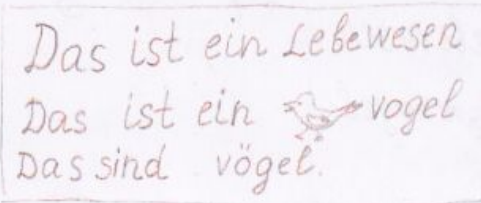 Das ist ein Lebewesen
Das ist ein vogel
Das sind vögel.